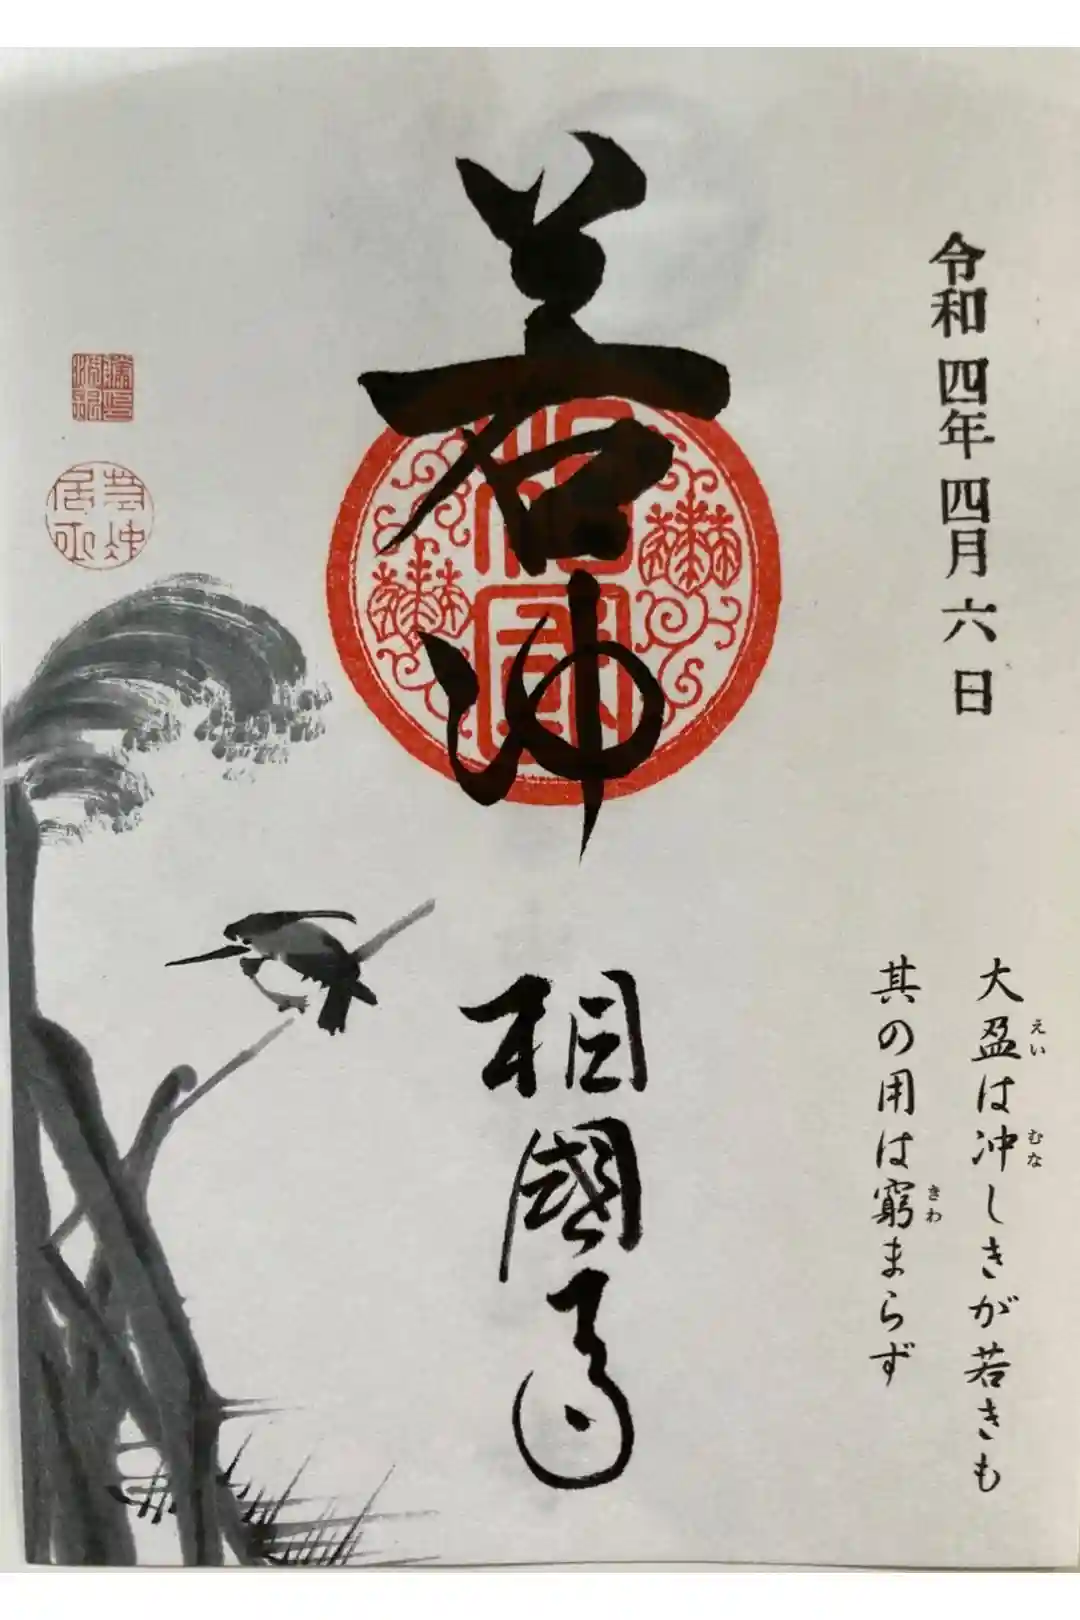 令和四年四月六日
若冲
相國寺
大盈は冲しきが若きも
えい
むな
其の用は窮まらず
きわ
相國
若冲居士